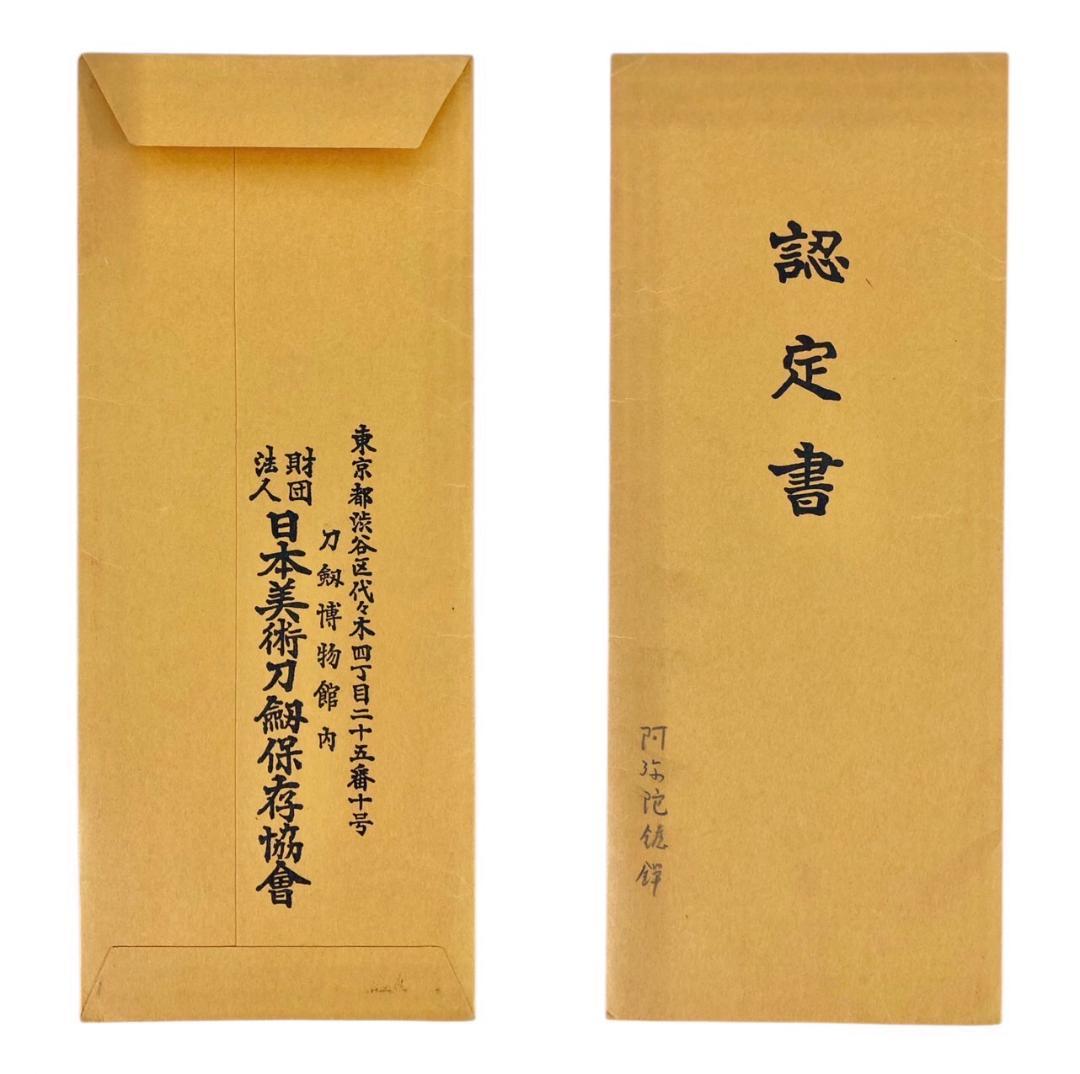 東京都渋谷区代々木四丁目二十五番十号
刀劔博物館内
財団
法人
日本美術刀劔保存協會
認定書
阿弥陀鑢鐔